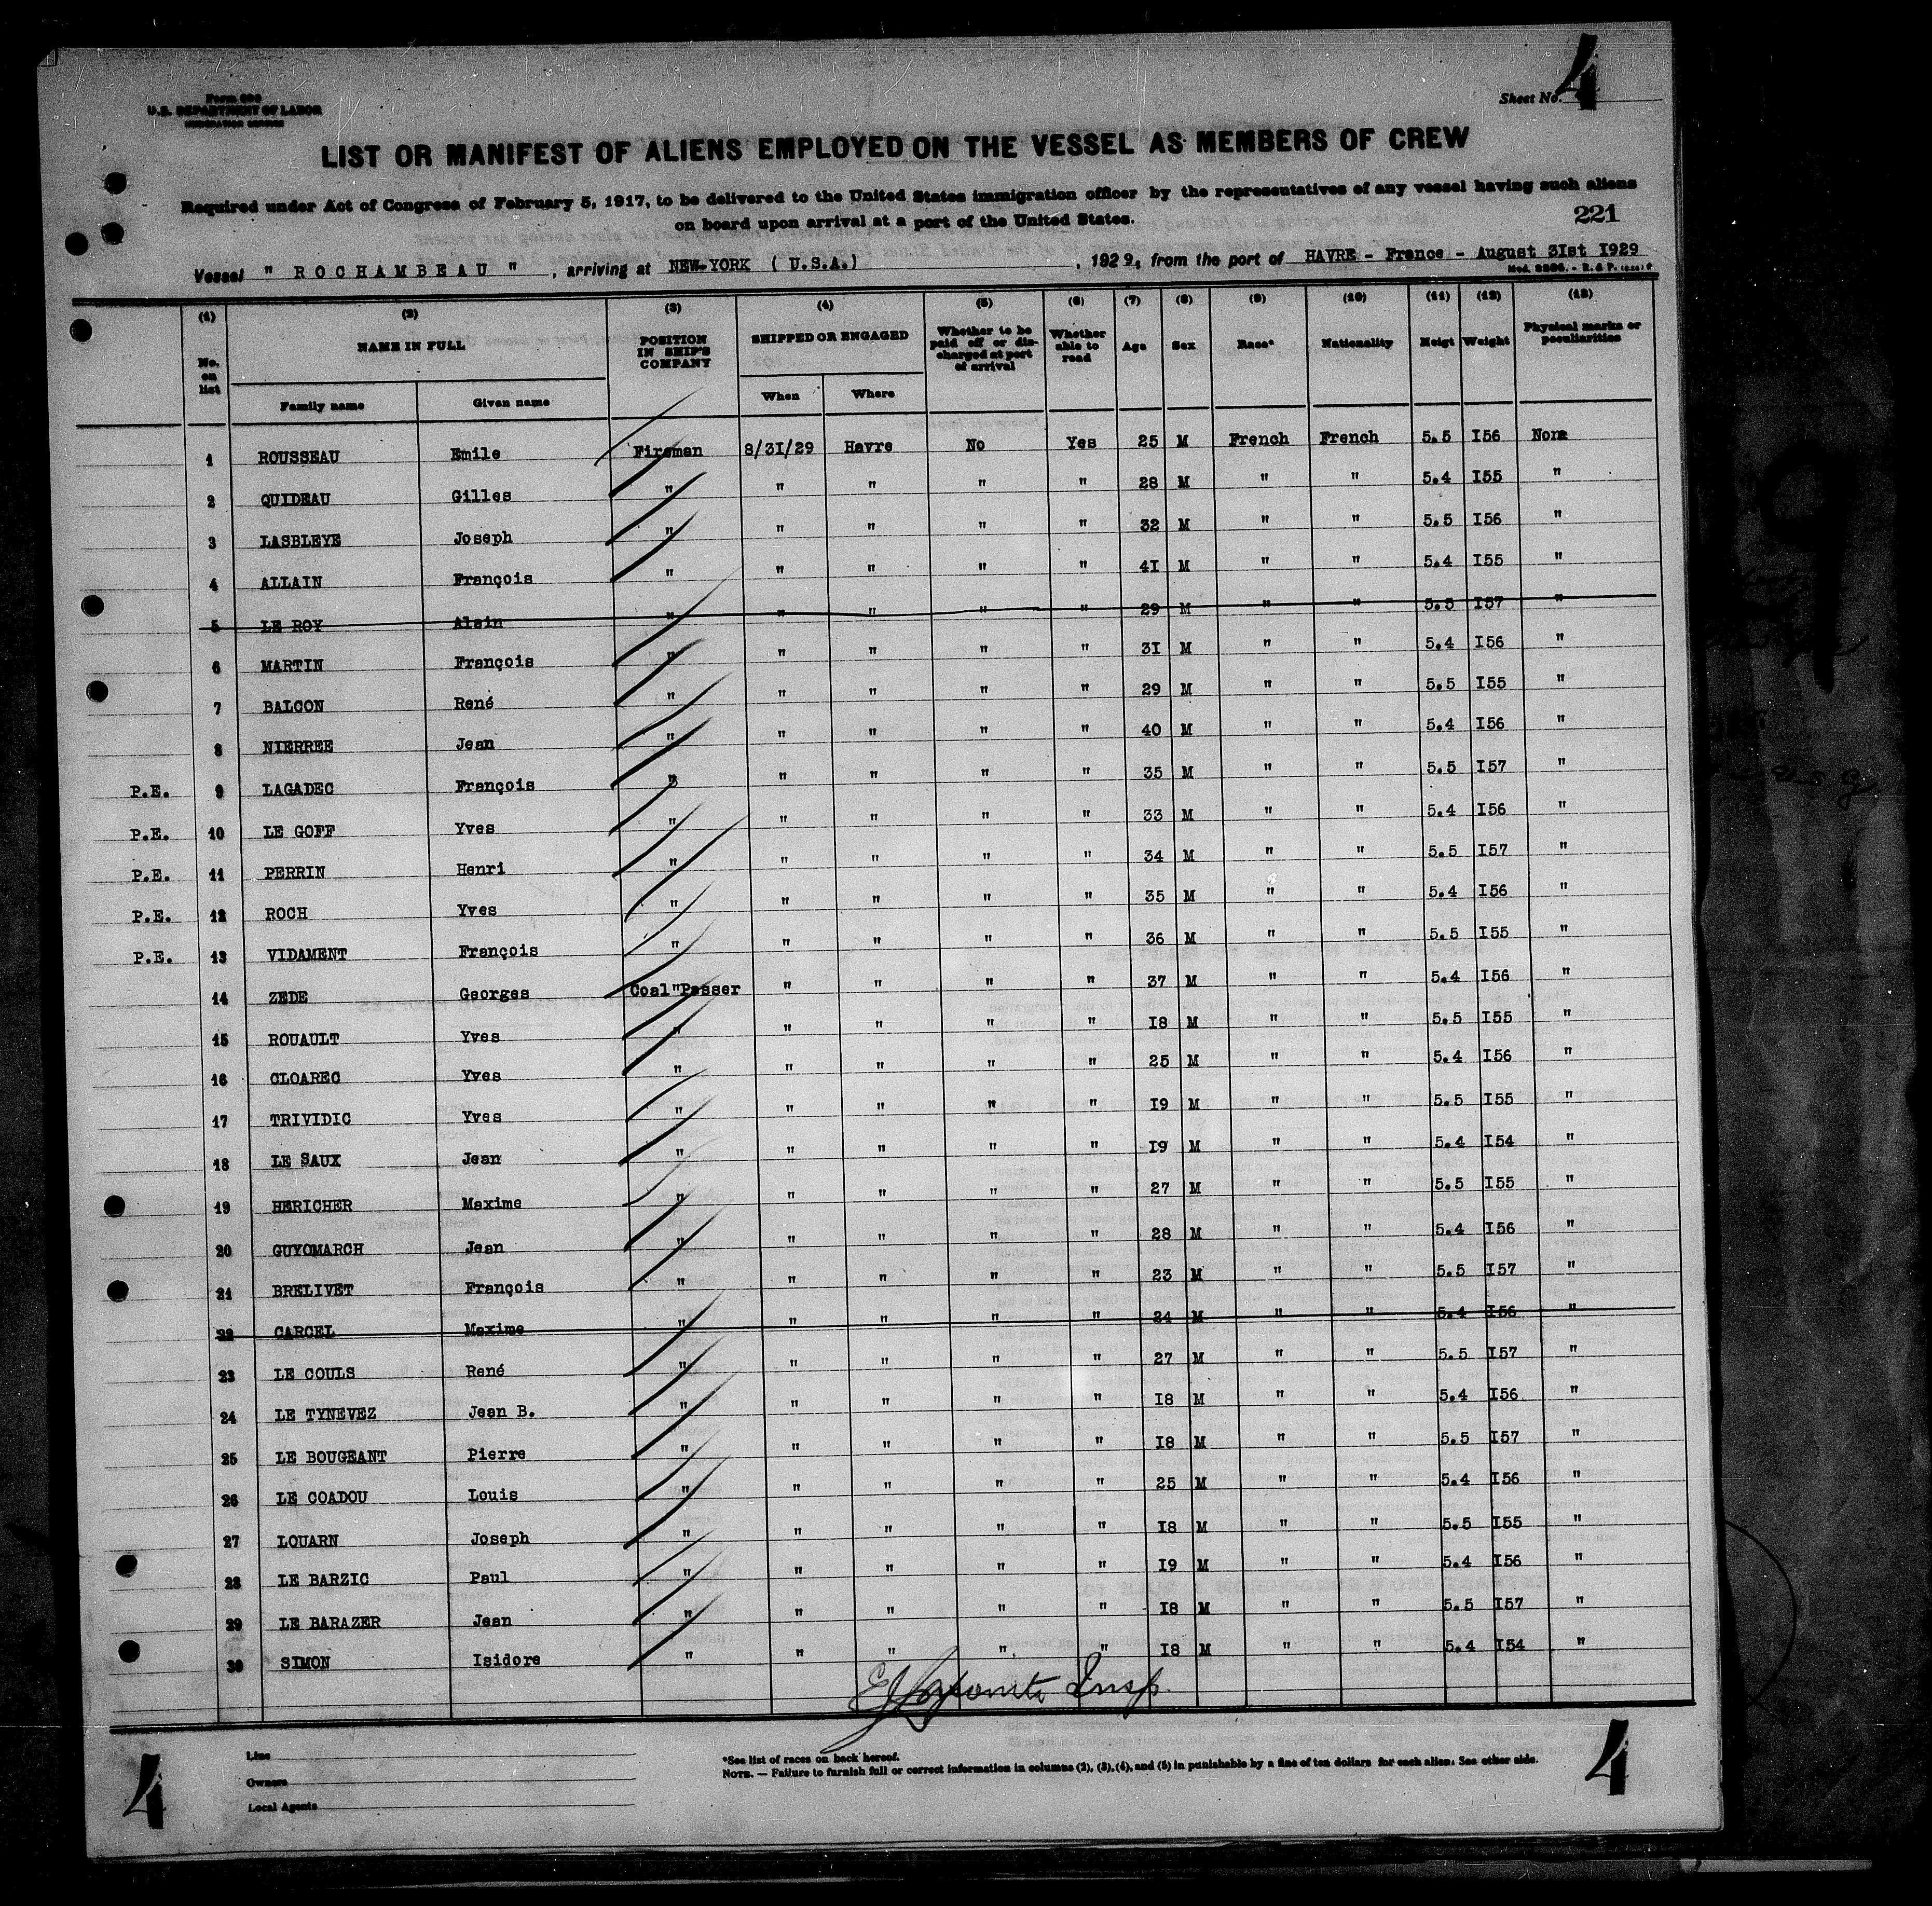 Form 680
U.S. DEPARTMENT OF LABOR
IMMIGRATION SERVICE
Sheet No. 4
LIST OR MANIFEST OF ALIENS EMPLOYED ON THE VESSEL AS MEMBERS OF CREW
Required under Act of Congress of February 5, 1917, to be delivered to the United States immigration officer by the representatives of any vessel having such aliens
on board upon arrival at a port of the United States.
221
Vessel " ROCHAMBEAU ", arriving at NEW-YORK ( U.S.A.), 1929, from the port of HAVRE - France - August 31st 1929
(1) (2) (3) (4) (5) (6) (7) (8) (9) (10) (11) (12) (13)
No. on list NAME IN FULL POSITION IN SHIP'S COMPANY SHIPPED OR ENGAGED Whether to be paid off or discharged at port of arrival Whether able to read Age Sex Race* Nationality Heigt Weight Physical marks or peculiarities
Family name Given name When Where
1 ROUSSEAU Emile Fireman 8/31/29 Havre No Yes 25 M French French 5.5 156 None
2 QUIDEAU Gilles " " " " " 28 M " " 5.4 155 "
3 LASBLEYE Joseph " " " " " 32 M " " 5.5 156 "
4 ALLAIN François " " " " " 41 M " " 5.4 155 "
5 LE ROY Alain " " " " " 29 M " " 5.5 157 "
6 MARTIN François " " " " " 31 M " " 5.4 156 "
7 BALCON René " " " " " 29 M " " 5.5 155 "
8 NIERREE Jean " " " " " 40 M " " 5.4 156 "
P.E. 9 LAGADEC François " " " " " 35 M " " 5.5 157 "
P.E. 10 LE GOFF Yves " " " " " 33 M " " 5.4 156 "
P.E. 11 PERRIN Henri " " " " " 34 M " " 5.5 157 "
P.E. 12 ROCH Yves " " " " " 35 M " " 5.4 156 "
P.E. 13 VIDAMENT François " " " " " 36 M " " 5.5 155 "
14 ZEDE Georges Coal"Passer " " " " 37 M " " 5.4 156 "
15 ROUAULT Yves " " " " " 18 M " " 5.5 155 "
16 CLOAREC Yves " " " " " 25 M " " 5.4 156 "
17 TRIVIDIC Yves " " " " " 19 M " " 5.5 155 "
18 LE SAUX Jean " " " " " 19 M " " 5.4 154 "
19 HERICHER Maxime " " " " " 27 M " " 5.5 155 "
20 GUYOMARCH Jean " " " " " 28 M " " 5.4 156 "
21 BRELIVET François " " " " " 23 M " " 5.5 157 "
22 CARCEL Maxime " " " " " 24 M " " 5.4 156 "
23 LE COULS René " " " " " 27 M " " 5.5 157 "
24 LE TYNEVEZ Jean B. " " " " " 18 M " " 5.4 156 "
25 LE BOUGEANT Pierre " " " " " 18 M " " 5.5 157 "
26 LE COADOU Louis " " " " " 25 M " " 5.4 156 "
27 LOUARN Joseph " " " " " 18 M " " 5.5 155 "
28 LE BARZIC Paul " " " " " 19 M " " 5.4 156 "
29 LE BARAZER Jean " " " " " 18 M " " 5.5 157 "
30 SIMON Isidore " " " " " 18 M " " 5.4 154 "
Insp.
Line
Owners
Local Agents
*See list of races on back hereof.
NOTE. — Failure to furnish full or correct information in columns (2), (3), (4), and (5) in punishable by a fine of ten dollars for each alien. See other side.
4
4